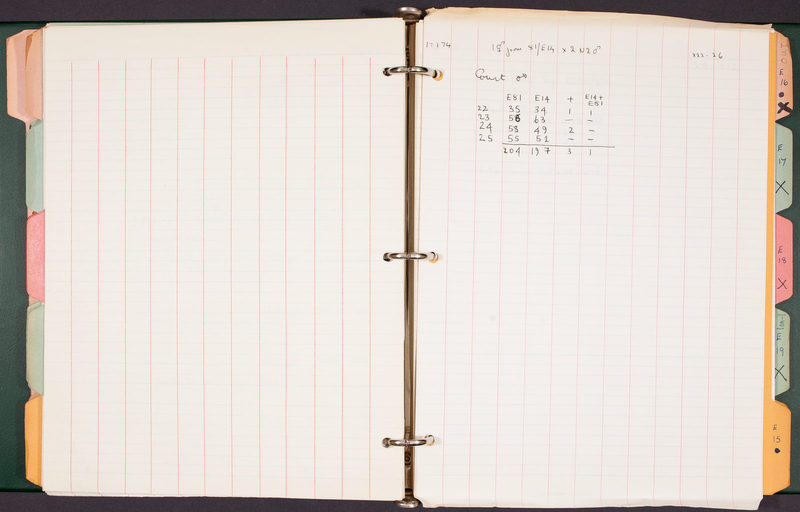 17 1 74 15♂ from 81/E14 x 2 N2♂ x22-26
Count
E81 E14 + E14+ E81
22 35 34 1 1
23 56 63 — —
24 58 49 2 —
25 55 51 — —
204 197 3 1
E 16
E 17
X
E 18
X
E 19
X
E 15